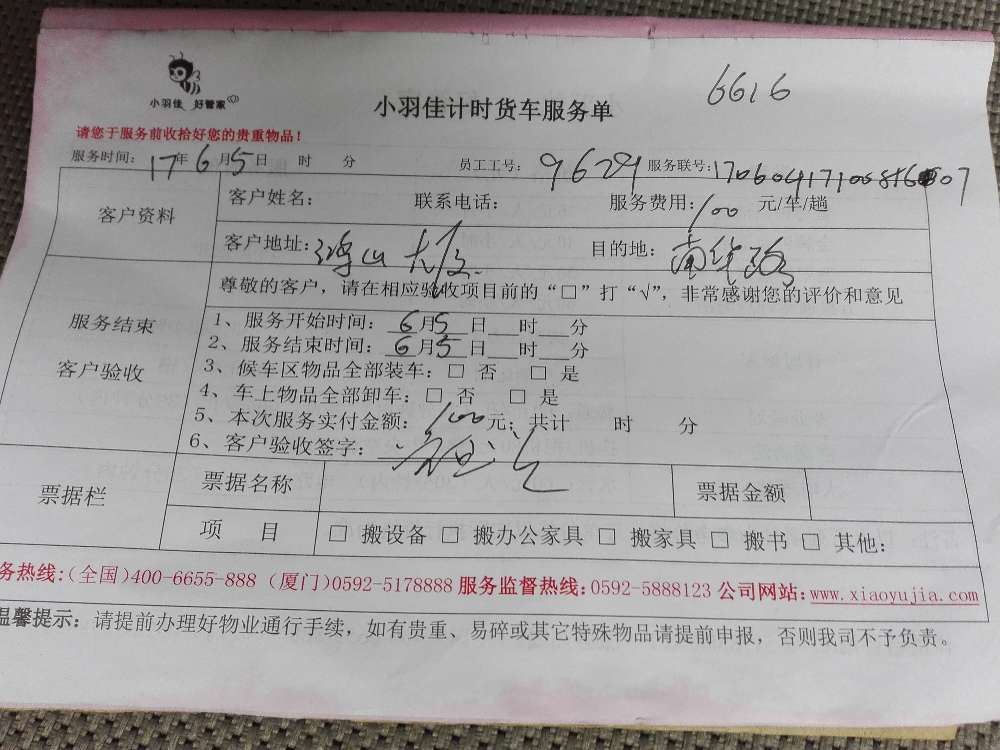 小羽佳 好管家
6616
小羽佳计时货车服务单
请您于服务前收拾好您的贵重物品！
服务时间：17年6月5日 时 分 员工工号：9629 服务联号：
客户资料
客户姓名： 联系电话： 服务费用：100 元/车/趟
客户地址：鸿山大厦 目的地：南华路
尊敬的客户，请在相应验收项目前的“□”打“√”，非常感谢您的评价和意见
服务结束
客户验收
1、服务开始时间：6月5日___时___分
2、服务结束时间：6月5日___时___分
3、候车区物品全部装车：□ 否 □ 是
4、车上物品全部卸车：□ 否 □ 是
5、本次服务实付金额：100元；共计 时 分
6、客户验收签字：
票据栏
票据名称 票据金额
项 目 □ 搬设备 □ 搬办公家具 □ 搬家具 □ 搬书 □ 其他：
务热线：(全国)400-6655-888 (厦门)0592-5178888 服务监督热线：0592-5888123 公司网站：www.xiaoyujia.com
温馨提示：请提前办理好物业通行手续，如有贵重、易碎或其它特殊物品请提前申报，否则我司不予负责。